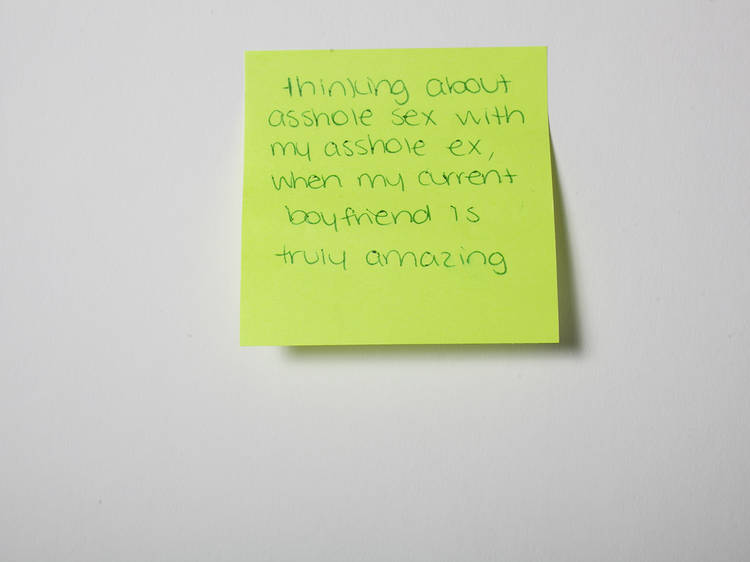 thinking about
asshole sex with
my asshole ex,
when my current
boyfriend is
truly amazing